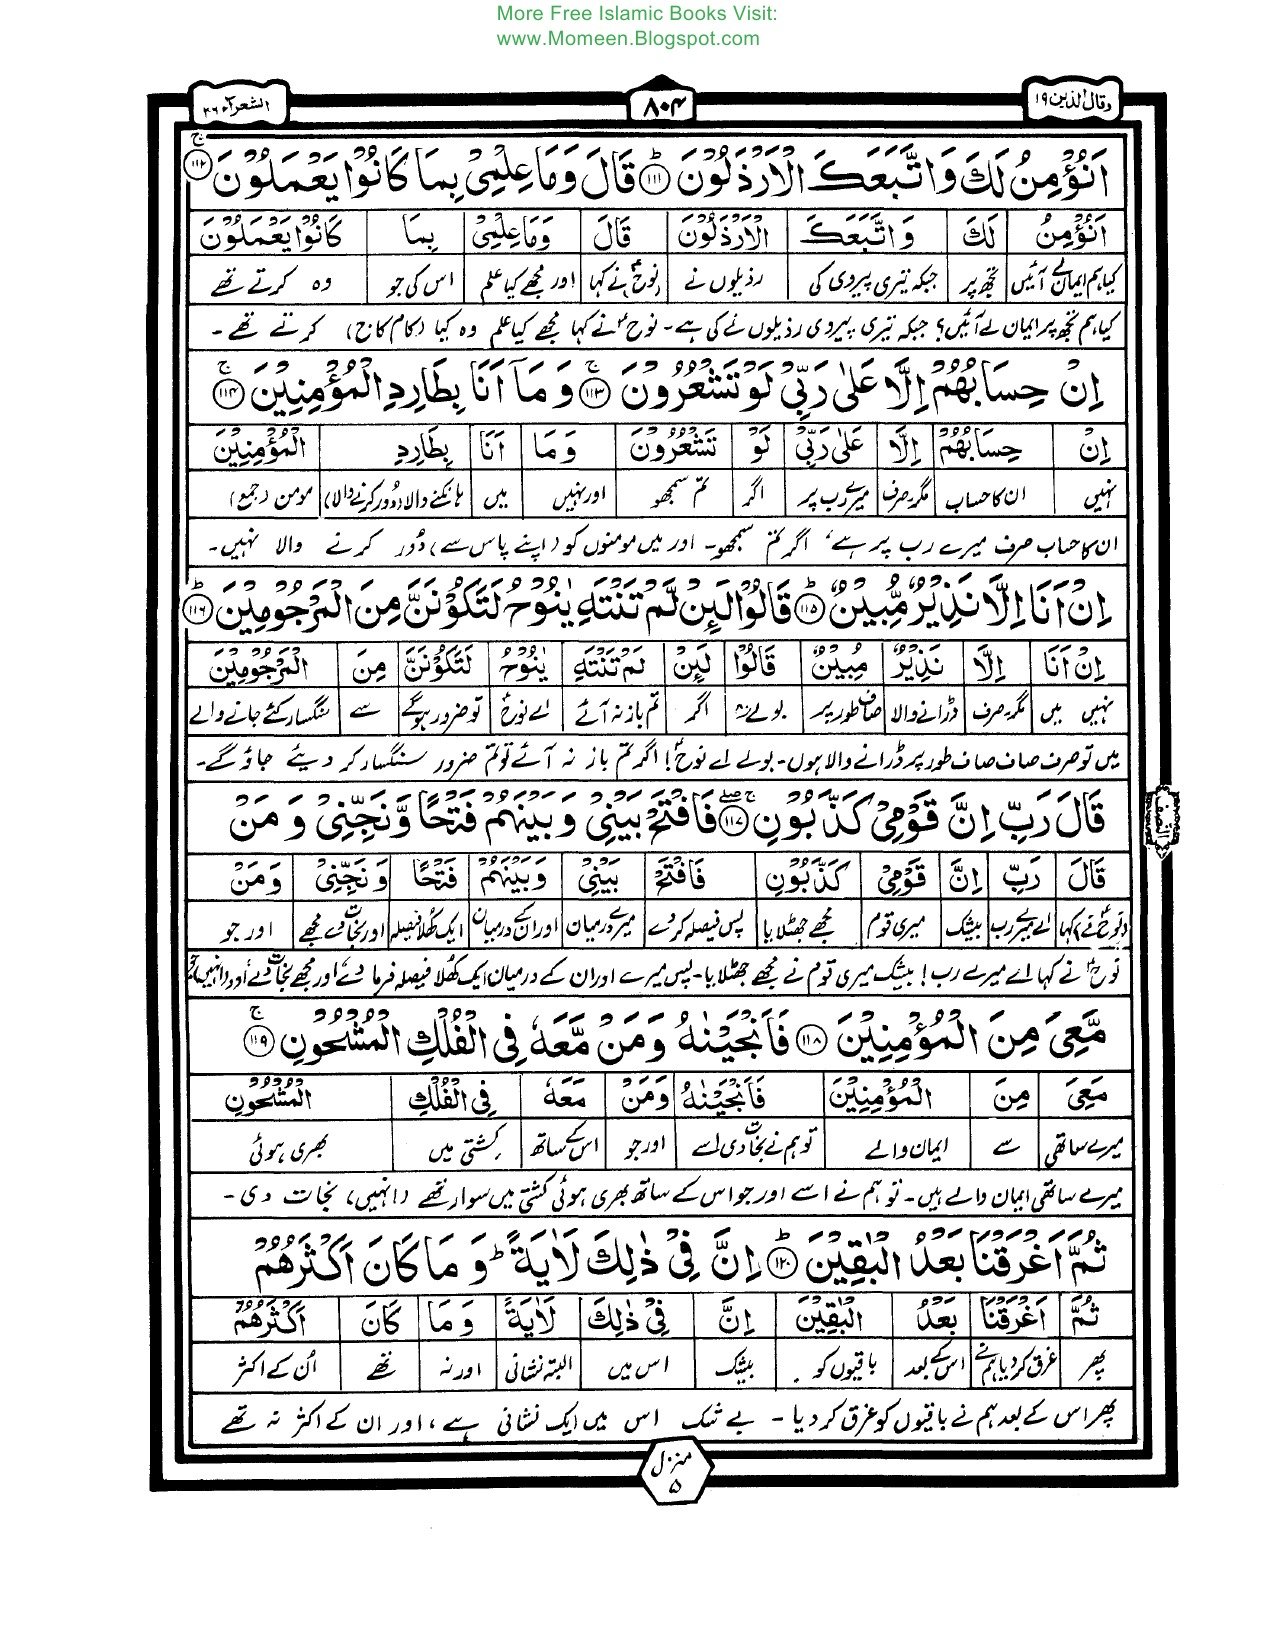 More Free Islamic Books Visit:
www.Momeen.Blogspot.com
وقال الذین ۱۹
۸۰۴
الشعرآء ۲۶
اَنُؤْمِنُ لَكَ وَاتَّبَعَكَ الْاَرْذَلُوْنَ ؕ ۝۱۱۱ قَالَ وَمَا عِلْمِیْ بِمَا كَانُوْا یَعْمَلُوْنَ ۚ ۝۱۱۲
اَنُؤْمِنُ لَكَ وَاتَّبَعَكَ الْاَرْذَلُوْنَ قَالَ وَمَا عِلْمِیْ بِمَا كَانُوْا یَعْمَلُوْنَ
کیا ہم ایمان لے آئیں تجھ پر جبکہ تیری پیروی کی رذیلوں نے (نوحؑ) نے کہا اور مجھے کیا علم اس کی جو وہ کرتے تھے
کیا ہم تجھ پر ایمان لے آئیں؟ جبکہ تیری پیروی رذیلوں نے کی ہے۔ نوحؑ نے کہا مجھے کیا علم وہ کیا (کام کاج) کرتے تھے۔
اِنْ حِسَابُهُمْ اِلَّا عَلٰی رَبِّیْ لَوْ تَشْعُرُوْنَ ۚ ۝۱۱۳ وَمَاۤ اَنَا بِطَارِدِ الْمُؤْمِنِیْنَ ۚ ۝۱۱۴
اِنْ حِسَابُهُمْ اِلَّا عَلٰی رَبِّیْ لَوْ تَشْعُرُوْنَ وَمَا اَنَا بِطَارِدِ الْمُؤْمِنِیْنَ
نہیں ان کا حساب مگر صرف میرے رب پر اگر تم سمجھو اور نہیں میں ہانکنے والا (دور کرنے والا) مومن (جمع)
ان کا حساب صرف میرے رب پر ہے، اگر تم سمجھو۔ اور میں مومنوں کو (اپنے پاس سے) دُور کرنے والا نہیں۔
اِنْ اَنَا اِلَّا نَذِیْرٌ مُّبِیْنٌ ؕ ۝۱۱۵ قَالُوْا لَىِٕنْ لَّمْ تَنْتَهِ یٰنُوْحُ لَتَكُوْنَنَّ مِنَ الْمَرْجُوْمِیْنَ ؕ ۝۱۱۶
اِنْ اَنَا اِلَّا نَذِیْرٌ مُبِیْنٌ قَالُوْا لَىِٕنْ لَمْ تَنْتَهِ یٰنُوْحُ لَتَكُوْنَنَّ مِنَ الْمَرْجُوْمِیْنَ
نہیں میں مگر صرف ڈرانے والا صاف طور پر بولے وہ اگر تم باز نہ آئے اے نوحؑ تو ضرور ہوگے سے سنگسار کئے جانے والے
میں تو صرف صاف صاف طور پر ڈرانے والا ہوں۔ بولے اے نوحؑ! اگر تم باز نہ آئے تو تم ضرور سنگسار کر دیئے جاؤ گے۔
قَالَ رَبِّ اِنَّ قَوْمِیْ كَذَّبُوْنِ ۝۱۱۷ فَافْتَحْ بَیْنِیْ وَبَیْنَهُمْ فَتْحًا وَّنَجِّنِیْ وَمَنْ
قَالَ رَبِّ اِنَّ قَوْمِیْ كَذَّبُوْنِ فَافْتَحْ بَیْنِیْ وَبَیْنَهُمْ فَتْحًا وَنَجِّنِیْ وَمَنْ
(نوحؑ) نے کہا اے میرے رب بیشک میری قوم مجھے جھٹلایا پس فیصلہ کردے میرے درمیان اور ان کے درمیان ایک کھلا فیصلہ اور نجات دے مجھے اور جو
نوحؑ نے کہا اے میرے رب! بیشک میری قوم نے مجھے جھٹلایا۔ پس میرے اور ان کے درمیان ایک کھلا فیصلہ فرما دے اور مجھے نجات دے اور انہیں
النصف
مَّعِیَ مِنَ الْمُؤْمِنِیْنَ ۝۱۱۸ فَاَنْجَیْنٰهُ وَمَنْ مَّعَهٗ فِی الْفُلْكِ الْمَشْحُوْنِ ۚ ۝۱۱۹
مَعِیَ مِنَ الْمُؤْمِنِیْنَ فَاَنْجَیْنٰهُ وَمَنْ مَعَهٗ فِی الْفُلْكِ الْمَشْحُوْنِ
میرے ساتھی سے ایمان والے تو ہم نے نجات دی اسے اور جو اس کے ساتھ کشتی میں بھری ہوئی
میرے ساتھی ایمان والے ہیں۔ تو ہم نے اسے اور جو اس کے ساتھ بھری ہوئی کشتی میں سوار تھے (انہیں) نجات دی۔
ثُمَّ اَغْرَقْنَا بَعْدُ الْبٰقِیْنَ ؕ ۝۱۲۰ اِنَّ فِیْ ذٰلِكَ لَاٰیَةً ؕ وَمَا كَانَ اَكْثَرُهُمْ
ثُمَّ اَغْرَقْنَا بَعْدُ الْبٰقِیْنَ اِنَّ فِیْ ذٰلِكَ لَاٰیَةً وَمَا كَانَ اَكْثَرُهُمْ
پھر غرق کردیا ہم نے اس کے بعد باقیوں کو بیشک اس میں البتہ نشانی اور نہ تھے اُن کے اکثر
پھر اس کے بعد ہم نے باقیوں کو غرق کر دیا۔ بے شک اس میں ایک نشانی ہے، اور ان کے اکثر نہ تھے
منزل
۵